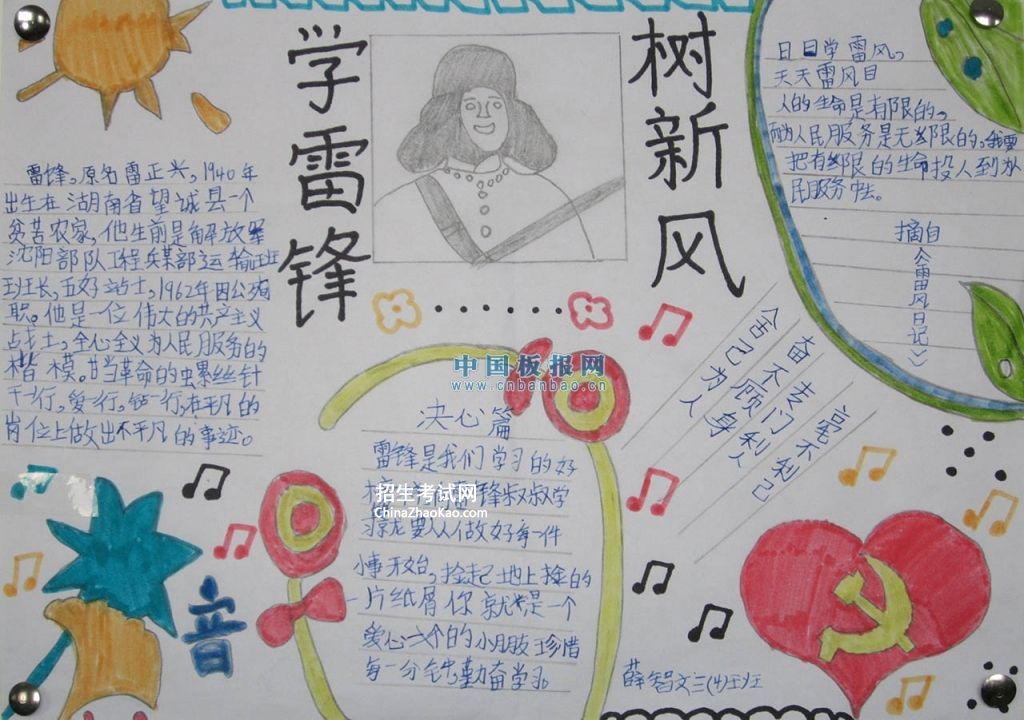 学雷锋
树新风
雷锋,原名雷正兴,1940年
出生在湖南省望诚县一个
贫苦农家,他生前是解放军
沈阳部队工程兵某部运输班
班长,五好战士,1962年因公殉
职。他是一位伟大的共产主义
战士,全心全义为人民服务的
楷模。甘当革命的虫累丝针
干一行,爱一行,钻一行,在平凡的
岗位上做出不平凡的事迹。
日日学雷风。
天天雷风日
人的生命是有限的。
而为人民服务是无限的,我要
把有限的生命投人到为
民服务中去。
摘自
《雷风日记》
毫不利己
专门利人
奋不顾身
舍己为人
中国板报网
www.cnbanbao.cn
决心篇
雷锋是我们学习的好
雷锋叔叔学
习就要从做好每一件
小事开始,捡起地上掉的
一片纸屑你就是一个
爱心的小朋友珍惜
每一分钟,勤奋学习。
招生考试网
ChinaZhaoKao.com
音
薛智文三(4)班